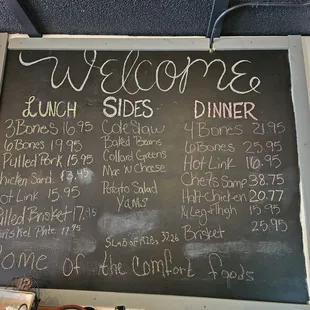 Welcome
LUNCH
3 Bones 16.95
6 Bones 19.95
Pulled Pork 15.95
Chicken Sand. $13.45
Hot Link 15.95
Pulled Brisket 17.95
Brisket Plate 17.95
SIDES
Cole Slaw
Baked Beans
Collard Greens
Mac 'n Cheese
Potato Salad
YAMS
SLAB of RIBS 37.26
DINNER
4 Bones 21.95
6 Bones 25.95
Hot Link 16.95
Chefs Samp 38.75
Half-chicken 20.77
Leg-thigh 15.95
Brisket 25.95
Home of the Comfort foods